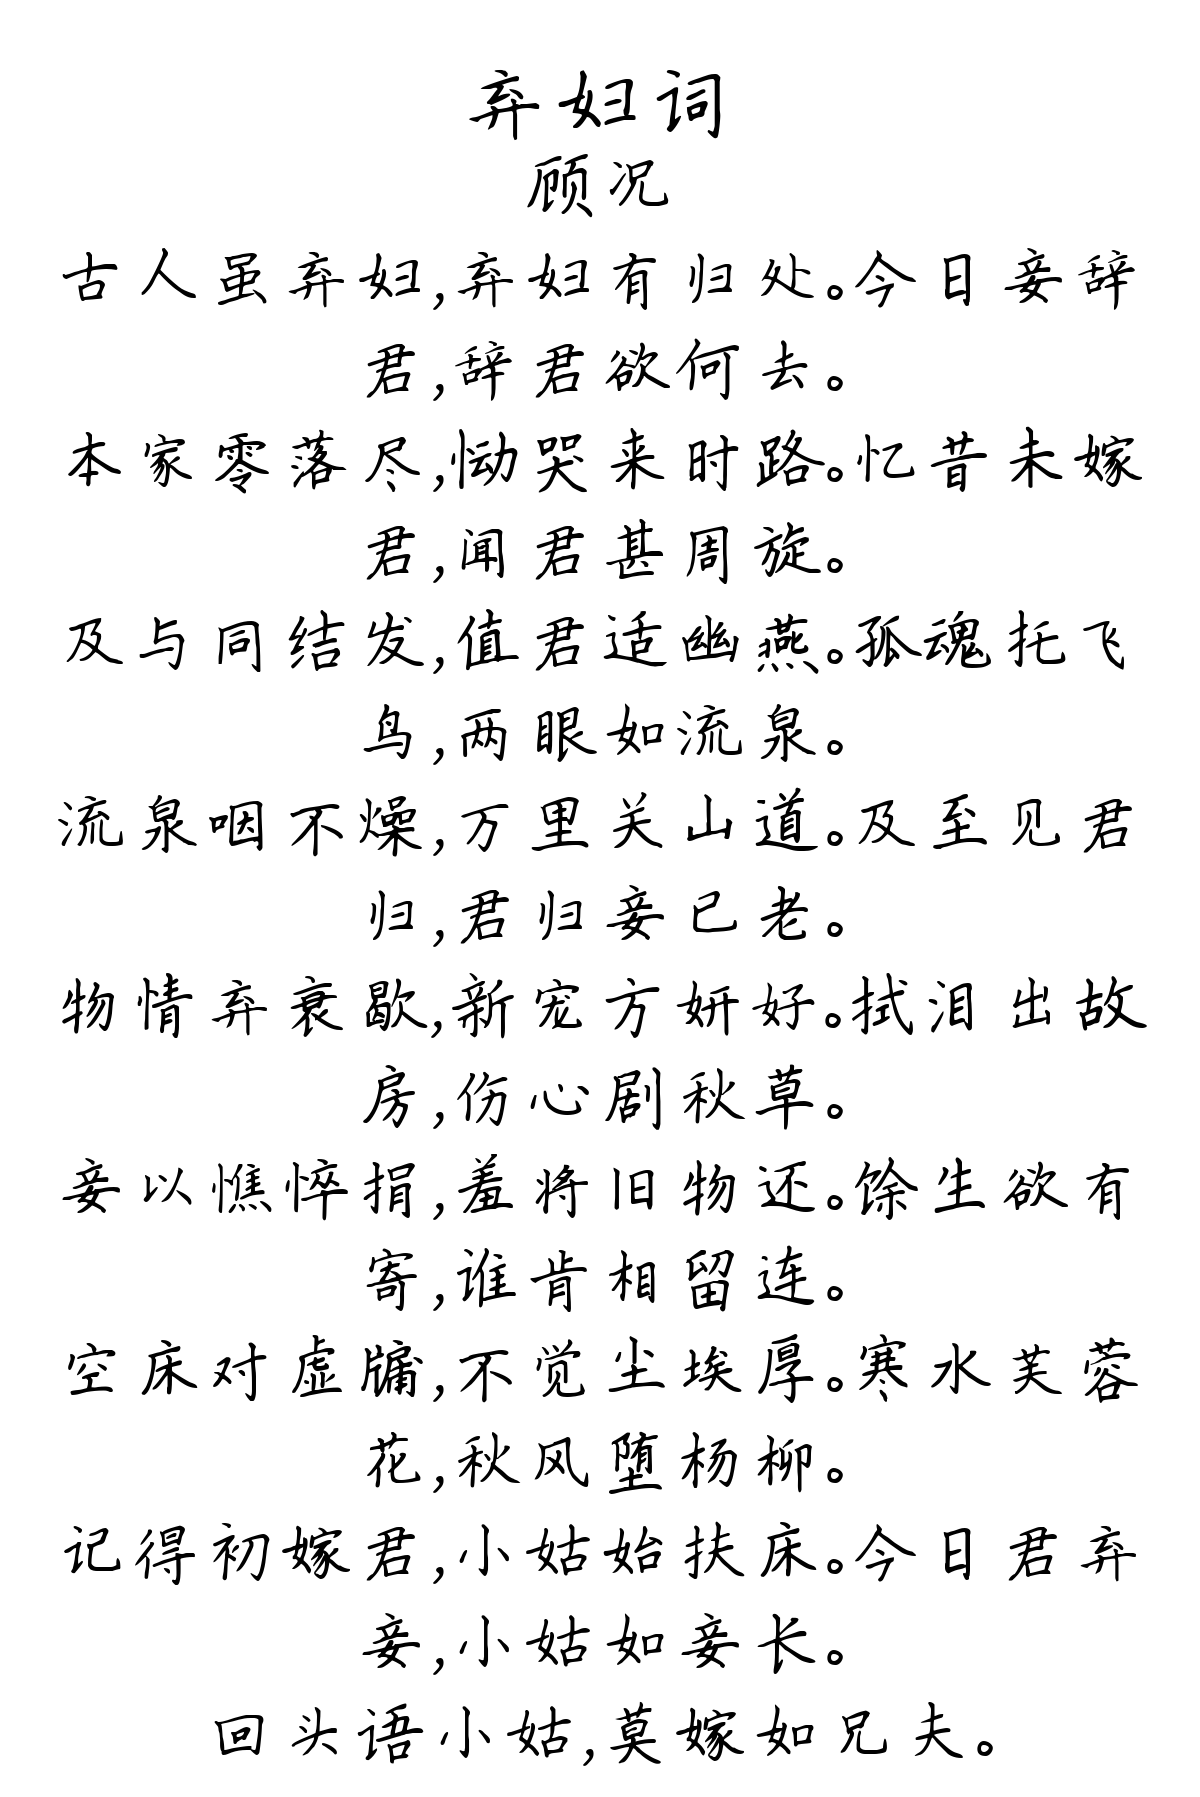 弃妇词
顾况
古人虽弃妇,弃妇有归处。今日妾辞
君,辞君欲何去。
本家零落尽,恸哭来时路。忆昔未嫁
君,闻君甚周旋。
及与同结发,值君适幽燕。孤魂托飞
鸟,两眼如流泉。
流泉咽不燥,万里关山道。及至见君
归,君归妾已老。
物情弃衰歇,新宠方妍好。拭泪出故
房,伤心剧秋草。
妾以憔悴捐,羞将旧物还。馀生欲有
寄,谁肯相留连。
空床对虚牖,不觉尘埃厚。寒水芙蓉
花,秋风堕杨柳。
记得初嫁君,小姑始扶床。今日君弃
妾,小姑如妾长。
回头语小姑,莫嫁如兄夫。